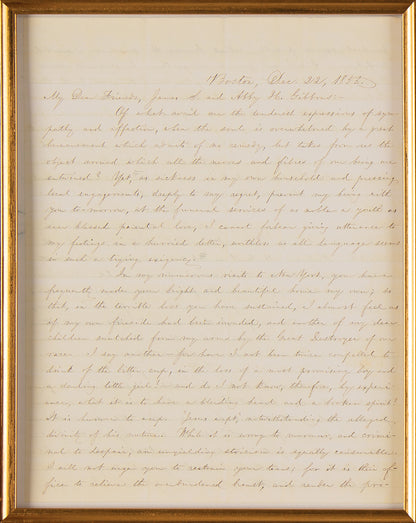 Boston, Dec. 22d, 1854.
My Dear Friends, James S. and Abby H. Gibbons:
Of what avail are the tenderest expressions of sym-
pathy and affection, when the soul is overwhelmed by a great
bereavement which admits of no remedy, but takes from us the
object around which all the nerves and fibres of our being are
entwined? Yet, as sickness in my own household and pressing
local engagements, deeply to my regret, prevent my being with
you to-morrow, at the funeral services of as noble a youth as
ever blessed parental love, I cannot forbear giving utterance to
my feelings in a hurried letter, worthless as all language seems
in such a trying exigency.
In my numerous visits to New York, you have
frequently made your bright and beautiful home my own; so
that, in the terrible loss you have sustained, I almost feel as
if my own fireside had been invaded, and another of my dear
children snatched from my arms by the Great Destroyer of our
race. I say another—for have I not been twice compelled to
drink of the bitter cup, in the loss of a most promising boy and
a darling little girl? and do I not know, therefore, by experi-
ence, what it is to have a bleeding heart and a broken spirit?
It is human to weep. "Jesus wept," notwithstanding the alleged
divinity of his nature. While it is wrong to murmur, and crimi-
nal to despair, an unyielding stoicism is equally censurable.
I will not urge you to restrain your tears, for it is their of-
fice to relieve the overburdened heart, and render the pro-